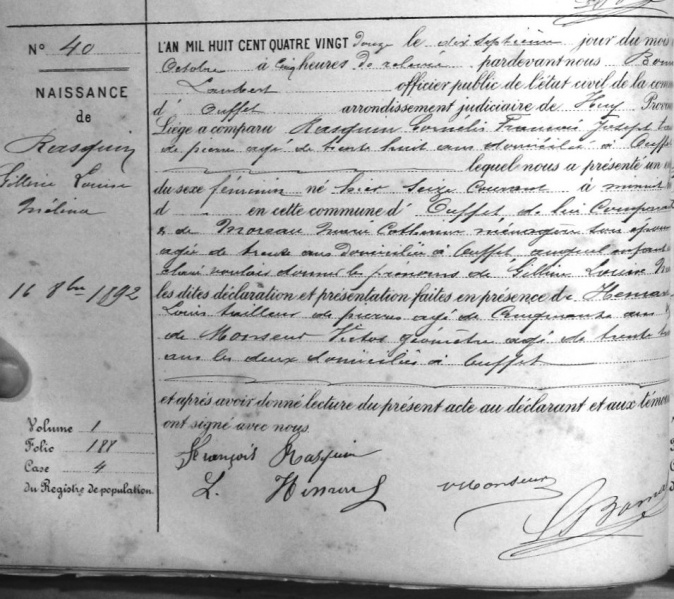 N° 40
NAISSANCE
de
Rasquin
Gilline Louise
Mélina
16 8bre 1892
Volume 1
Folio 188
Case 4
du Registre de population.
L'AN MIL HUIT CENT QUATRE VINGT douze le dix septième jour du mois
Octobre à cinq heures de relevée pardevant nous
Lambert officier public de l'état civil de la com
d' Ouffet arrondissement judiciaire de Huy Provin
Liège a comparu Rasquin Cornélis François Joseph
de pierre agé de trente huit ans domicilié à Ouffet
lequel nous a présenté un e
du sexe féminin né hier seize Courant à minuit
d en cette commune d' Ouffet de lui Comparant
& de Moreau Marie Catherine ménagère son épouse
agée de trente ans domiciliée à Ouffet auquel enfant
il a voulait donner les prénoms de Gilline Louise
les dites déclaration et présentation faites en présence de
Louis tailleur de pierres agé de Cinquante ans &
de Monseur Victor géomètre agé de trente
ans les deux domiciliés à Ouffet
et après avoir donné lecture du présent acte au déclarant et aux témoi
ont signé avec nous.
François Rasquin
L.
V Monseur